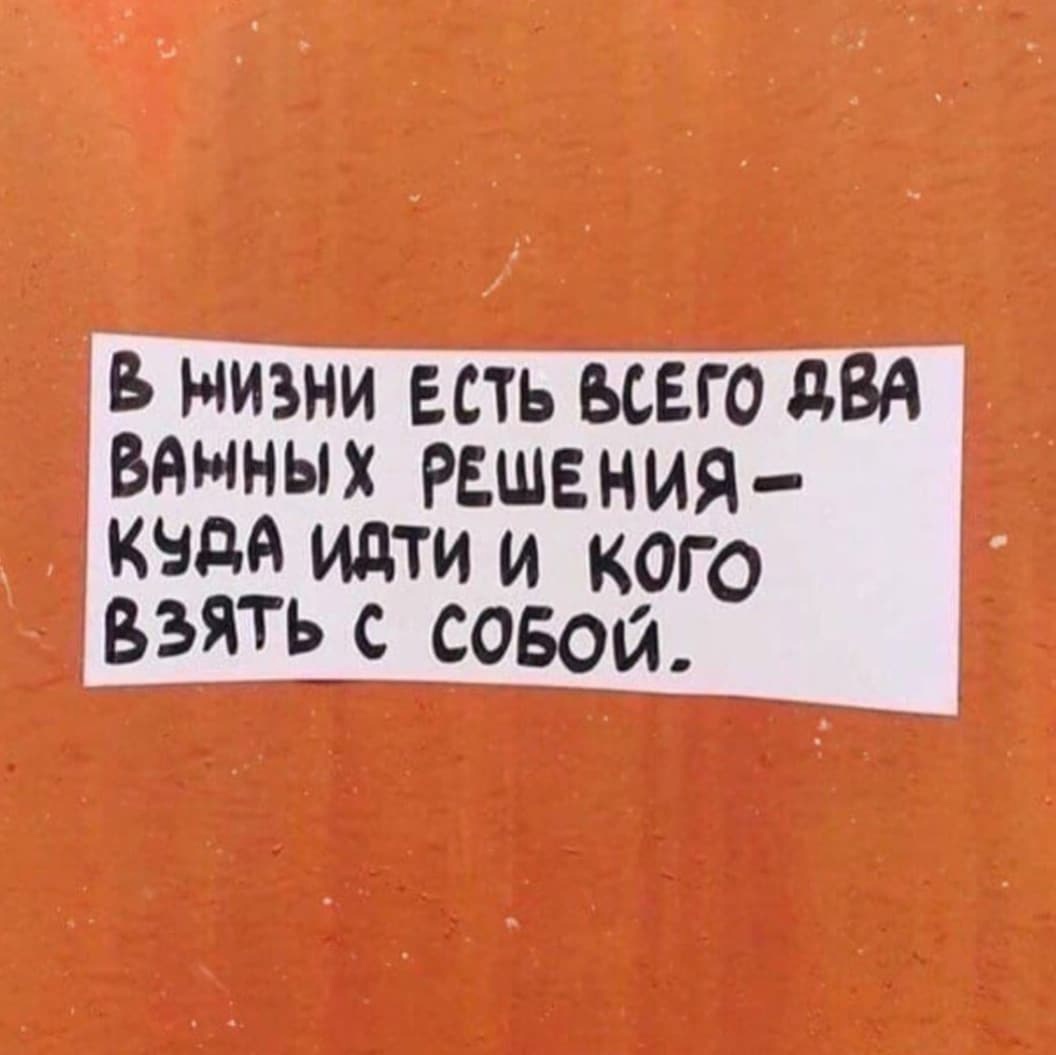 В ЖИЗНИ ЕСТЬ ВСЕГО ДВА
ВАЖНЫХ РЕШЕНИЯ –
КУДА ИДТИ И КОГО
ВЗЯТЬ С СОБОЙ.